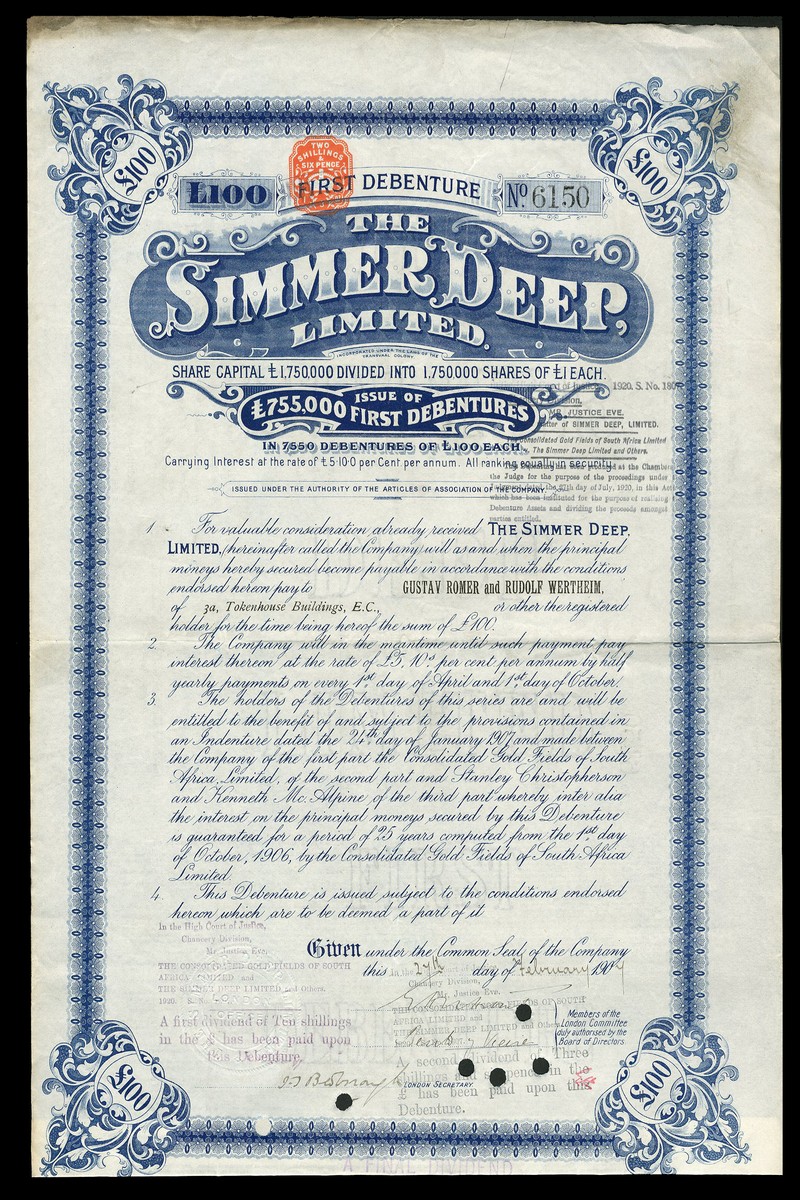 £100
£100
TWO
SHILLINGS
&
SIX PENCE
£100 FIRST DEBENTURE No. 6150
THE
SIMMER DEEP,
LIMITED.
INCORPORATED UNDER THE LAWS OF THE
TRANSVAAL COLONY
SHARE CAPITAL £1,750,000 DIVIDED INTO 1,750,000 SHARES OF £1 EACH.
ISSUE OF
£755,000 FIRST DEBENTURES
IN 7550 DEBENTURES OF £100 EACH.
Carrying Interest at the rate of £5·10·0 per Cent per annum. All ranking equally in security.
ISSUED UNDER THE AUTHORITY OF THE ARTICLES OF ASSOCIATION OF THE COMPANY.
1920. S. No. 180
MR JUSTICE EVE.
of SIMMER DEEP, LIMITED.
Consolidated Gold Fields of South Africa Limited
The Simmer Deep Limited and Others.
at the Chambers
the Judge for the purpose of the proceedings under
day of July, 1920, in this
which has been instituted for the purpose of realising
Debenture Assets and dividing the proceeds amongst
parties entitled.
1. For valuable consideration already received THE SIMMER DEEP,
LIMITED, (hereinafter called the Company) will as and when the principal
moneys hereby secured become payable in accordance with the conditions
endorsed hereon pay to GUSTAV ROMER and RUDOLF WERTHEIM,
of 3a, Tokenhouse Buildings, E.C., or other the registered
holder for the time being hereof the sum of £100.
2. The Company will in the meantime until such payment pay
interest thereon at the rate of £5. 10s per cent per annum by half
yearly payments on every 1st day of April and 1st day of October.
3. The holders of the Debentures of this series are and will be
entitled to the benefit of and subject to the provisions contained in
an Indenture dated the 24th day of January 1907 and made between
the Company of the first part the Consolidated Gold Fields of South
Africa, Limited, of the second part and Stanley Christopherson
and Kenneth Mc. Alpine of the third part whereby inter alia
the interest on the principal moneys secured by this Debenture
is guaranteed for a period of 25 years computed from the 1st day
of October, 1906, by the Consolidated Gold Fields of South Africa
Limited.
4. This Debenture is issued subject to the conditions endorsed
hereon which are to be deemed a part of it
Given under the Common Seal of the Company
this 27th day of February 190
In the High Court of Justice,
Chancery Division,
Mr. Justice Eve.
THE CONSOLIDATED GOLD FIELDS OF SOUTH
AFRICA LIMITED and
THE SIMMER DEEP LIMITED and Others.
1920. S. No.
A first dividend of Ten shillings
in the £ has been paid upon
this Debenture.
Chancery Division,
Justice Eve.
FIELDS OF SOUTH
AFRICA LIMITED and
SIMMER DEEP LIMITED and Others
Members of the
London Committee
duly authorised by the
Board of Directors.
LONDON SECRETARY.
A second dividend of Three
shillings and sixpence in the
£ has been paid upon this
Debenture.
£100
£100
A FINAL DIVIDEND